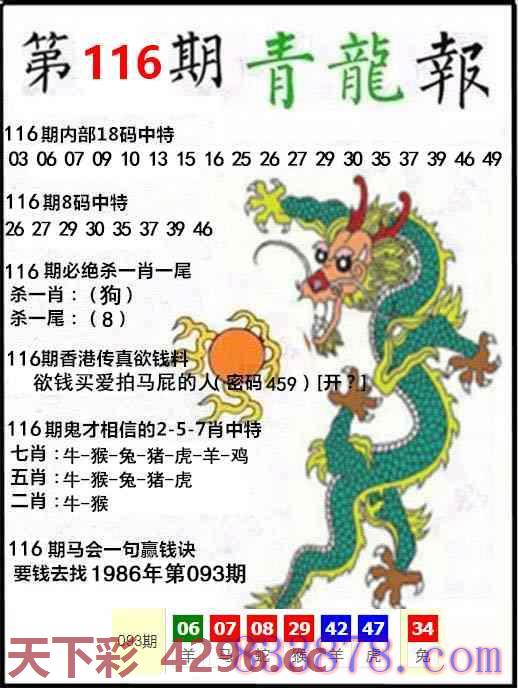 第116期 青龍報
116期内部18码中特
03 06 07 09 10 13 15 16 25 26 27 29 30 35 37 39 46 49
116期8码中特
26 27 29 30 35 37 39 46
116期必绝杀一肖一尾
杀一肖：（狗）
杀一尾：（8）
116期香港传真欲钱料
欲钱买爱拍马屁的人（密码459）[开？]
116期鬼才相信的2-5-7肖中特
七肖：牛-猴-兔-猪-虎-羊-鸡
五肖：牛-猴-兔-猪-虎
二肖：牛-猴
116期马会一句赢钱诀
要钱去找1986年第093期
093期 06 07 08 29 42 47 34
羊 马 蛇 猴 羊 虎 兔
天下彩 4296.cc